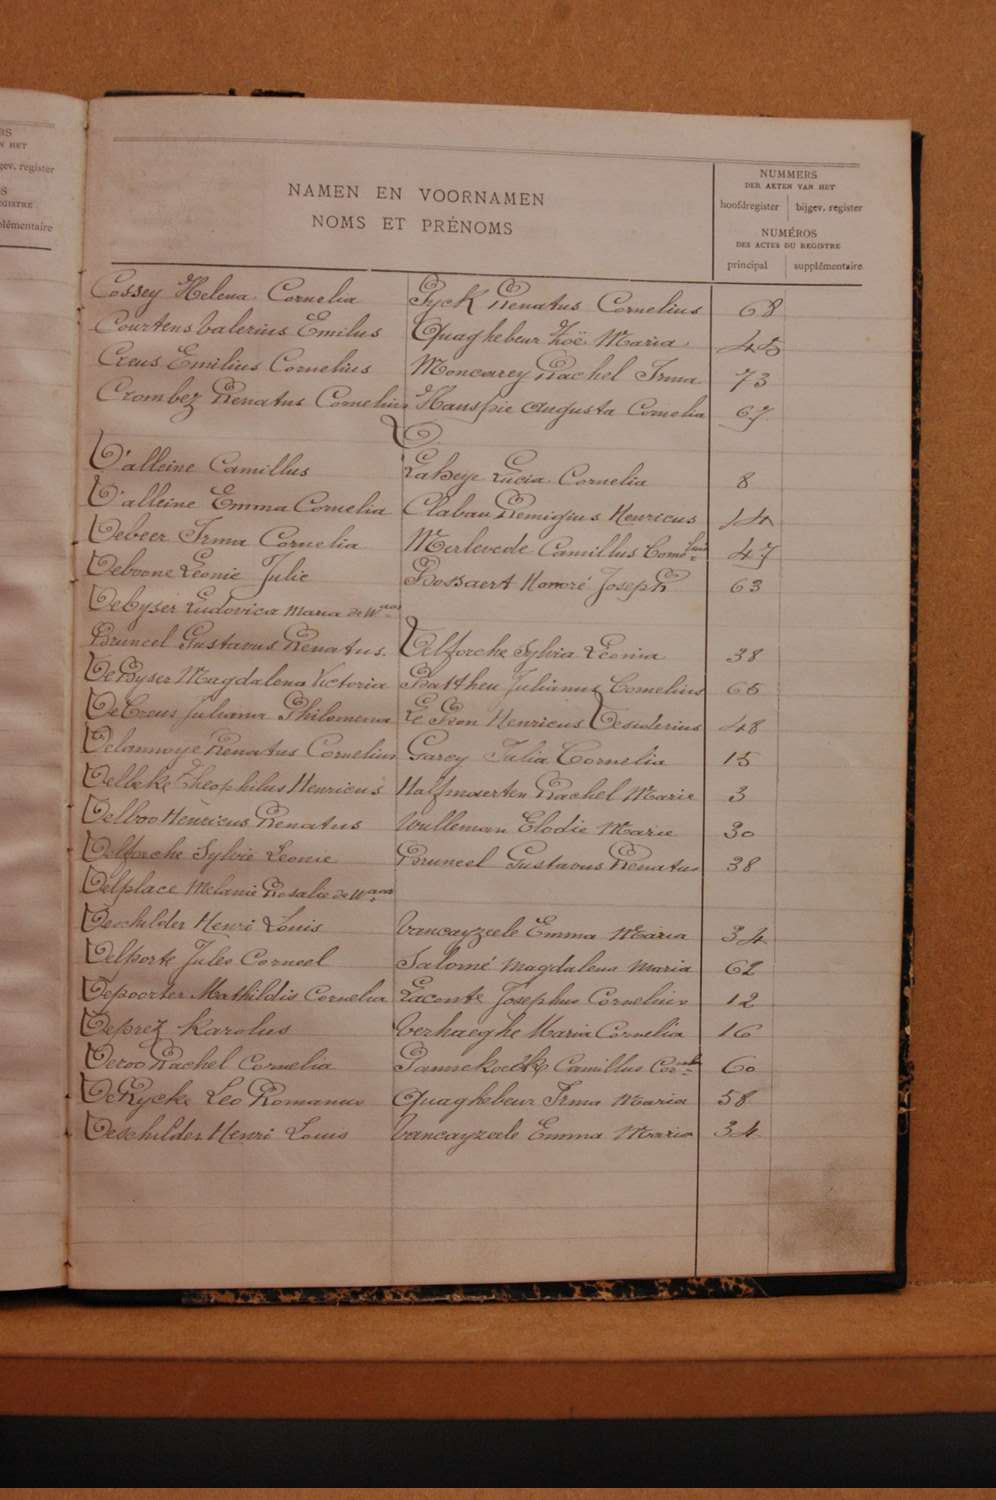 BS
N HET
gev. register
S
EGISTRE
plémentaire
NAMEN EN VOORNAMEN
NOMS ET PRÉNOMS
NUMMERS
DER AKTEN VAN HET
hoofdregister bijgev. register
NUMÉROS
DES ACTES DU REGISTRE
principal supplémentaire
Cossey Helena Cornelia Pyck Renatus Cornelius 68
Courtens Valerius Emilus Quaghebeur Zoë Maria 45
Creus Emilius Cornelius Moncarey Rachel Irma 73
Crombez Renatus Cornelius Hauspie Augusta Cornelia 67
D
D'alleine Camillus Laheye Lucia Cornelia 8
D'alleine Emma Cornelia Clabau Remigius Henricus 14
Debeer Irma Cornelia Merlevede Camillus Corne lius 47
Deboone Leonie Julie Bossaert Honoré Joseph 63
De Cyser Ludovica Maria de Wwe
Bruneel Gustavus Renatus Delforche Sylvia Leonia 38
De Byser Magdalena Victoria Battheu Julianus Cornelius 65
De Creus Juliana Philomena Le Pon Henricus Desiderius 48
Delannoye Renatus Cornelius Garey Julia Cornelia 15
Delbeke Theophilus Henricus Halfmaerten Rachel Marie 3
Delboo Henricus Renatus Wulleman Elodie Marie 30
Delforche Sylvie Leonie Bruneel Gustavus Renatus 38
Delplace Melanie Rosalie de
Deschilder Henri Louis Vancayzeele Emma Maria 34
Delporte Jules Corneel Salomé Magdalena Maria 62
Depoorter Mathildis Cornelia Laconte Josephus Cornelius 12
Deprez Karolus Verhaeghe Maria Cornelia 16
Deroo Rachel Cornelia Pannekoecke Camillus 60
De Rycke Leo Romanus Quaghebeur Irma Maria 58
Deschilder Henri Louis Vancayzeele Emma Maria 34